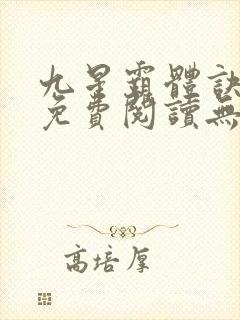 九星霸體訣
免費閱讀無
高培厚